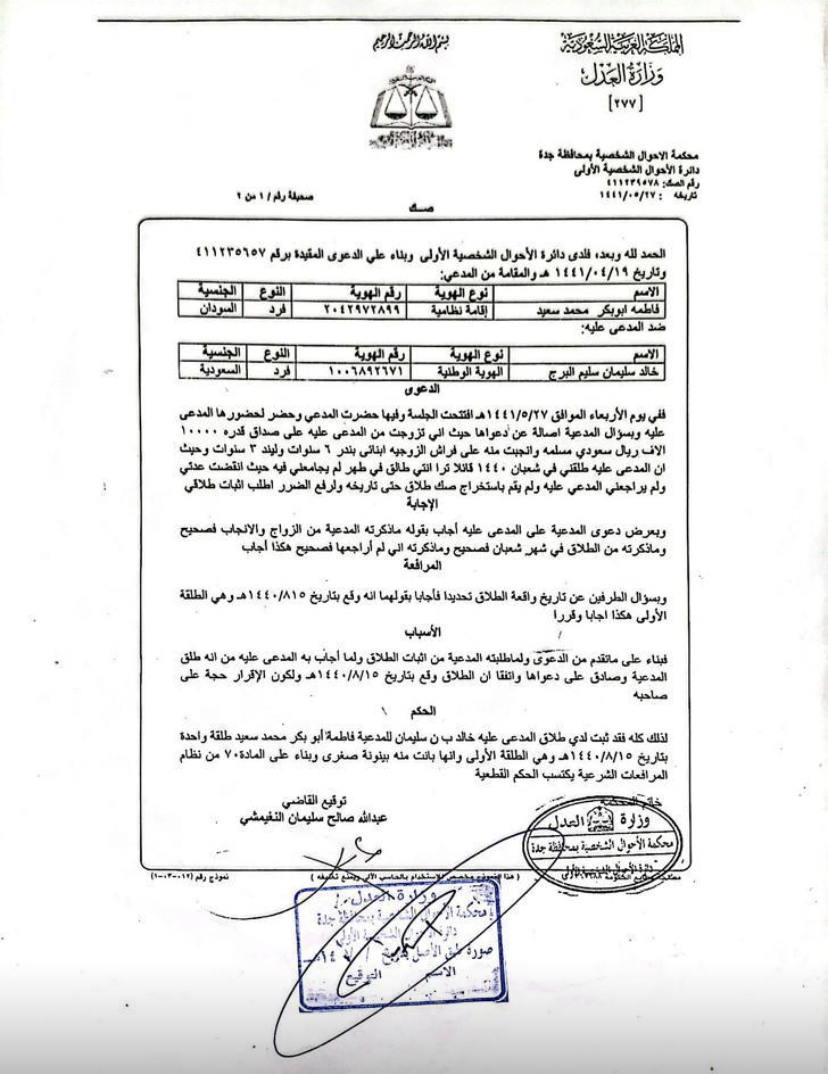 المملكة العربية السعودية
وزارة العدل
[٢٧٧]
بسم الله الرحمن الرحيم
محكمة الاحوال الشخصية بمحافظة جدة
دائرة الأحوال الشخصية الأولى
رقم الصك: ٤١١٢٣٩٥٧٨
تاريخه : ١٤٤١/٠٥/٢٧
صحيفة رقم / ١ من ٢
صك
الحمد لله وبعد، فلدى دائرة الأحوال الشخصية الأولى وبناء علي الدعوى المقيدة برقم ٤١١٢٣٥٦٥٧
وتاريخ ١٤٤١/٠٤/١٩ هـ والمقامة من المدعي:
الاسم نوع الهوية رقم الهوية النوع الجنسية
فاطمه ابوبكر محمد سعيد إقامة نظامية ٢٠٤٢٩٧٢٨٩٩ فرد السودان
ضد المدعى عليه:
الاسم نوع الهوية رقم الهوية النوع الجنسية
خالد سليمان سليم البرج الهوية الوطنية ١٠٠٦٨٩٢٦٧١ فرد السعودية
الدعوى
ففي يوم الأربعاء الموافق ١٤٤١/٥/٢٧هـ افتتحت الجلسة وفيها حضرت المدعي وحضر لحضورها المدعى
عليه وبسؤال المدعية اصالة عن دعواها حيث اني تزوجت من المدعى عليه على صداق قدره ١٠٠٠٠
الاف ريال سعودي مسلمه وانجبت منه على فراش الزوجيه ابنائى بندر ٦ سنوات وليند ٣ سنوات وحيث
ان المدعى عليه طلقني في شعبان ١٤٤٠ قائلا ترا انتي طالق في طهر لم يجامعني فيه حيث انقضت عدتي
ولم يراجعني المدعي عليه ولم يقم باستخراج صك طلاق حتى تاريخه ولرفع الضرر اطلب اثبات طلاقي
الإجابة
وبعرض دعوى المدعية على المدعى عليه أجاب بقوله ماذكرته المدعية من الزواج والانجاب فصحيح
وماذكرته من الطلاق في شهر شعبان فصحيح وماذكرته اني لم أراجعها فصحيح هكذا أجاب
المرافعة
وبسؤال الطرفين عن تاريخ واقعة الطلاق تحديدا فأجابا بقولهما انه وقع بتاريخ ١٤٤٠/٨١٥هـ وهي الطلقة
الأولى هكذا اجابا وقررا
الأسباب
فبناء على ماتقدم من الدعوى ولماطلبته المدعية من اثبات الطلاق ولما أجاب به المدعى عليه من انه طلق
المدعية وصادق على دعواها واتفقا ان الطلاق وقع بتاريخ ١٤٤٠/٨/١٥هـ ولكون الإقرار حجة على
صاحبه
الحكم
لذلك كله فقد ثبت لدي طلاق المدعى عليه خالد ب ن سليمان للمدعية فاطمة أبو بكر محمد سعيد طلقة واحدة
بتاريخ ١٤٤٠/٨/١٥هـ وهي الطلقة الأولى وانها بانت منه بينونة صغرى وبناء على المادة٧٠ من نظام
المرافعات الشرعية يكتسب الحكم القطعية
توقيع القاضي
عبدالله صالح سليمان النغيمشي
خاتم المحكمة
وزارة العدل
محكمة الأحوال الشخصية بمحافظة جدة
دائرة الأحوال الشخصية الأولى
نموذج رقم (١٢-٠٣-١)
( هذا النموذج مخصص للاستخدام بالحاسب الآلي ويمنع تغليفه )
وزارة العدل
محكمة الأحوال الشخصية بمحافظة جدة
دائرة الأحوال الشخصية الأولى
صورة طبق الأصل بتاريخ / / ١٤ هـ
الاسم التوقيع